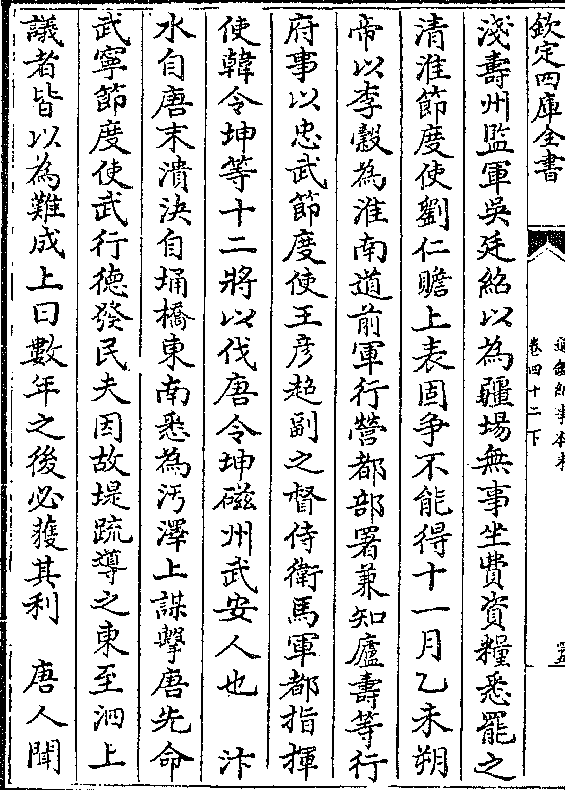 欽定四庫全書
通鑑紀事本末
卷四十二下
淺壽州監軍吳廷紹以為疆場無事坐費資糧悉罷之
清淮節度使劉仁贍上表固爭不能得十一月乙未朔
帝以李穀為淮南道前軍行營都部署兼知廬壽等行
府事以忠武節度使王彥超副之督侍衛馬軍都指揮
使韓令坤等十二將以伐唐令坤磁州武安人也　汴
水自唐末潰決自埇橋東南悉為汚澤上謀擊唐先命
武寧節度使武行德發民夫因故堤疏導之東至泗上
議者皆以為難成上曰數年之後必獲其利　唐人聞